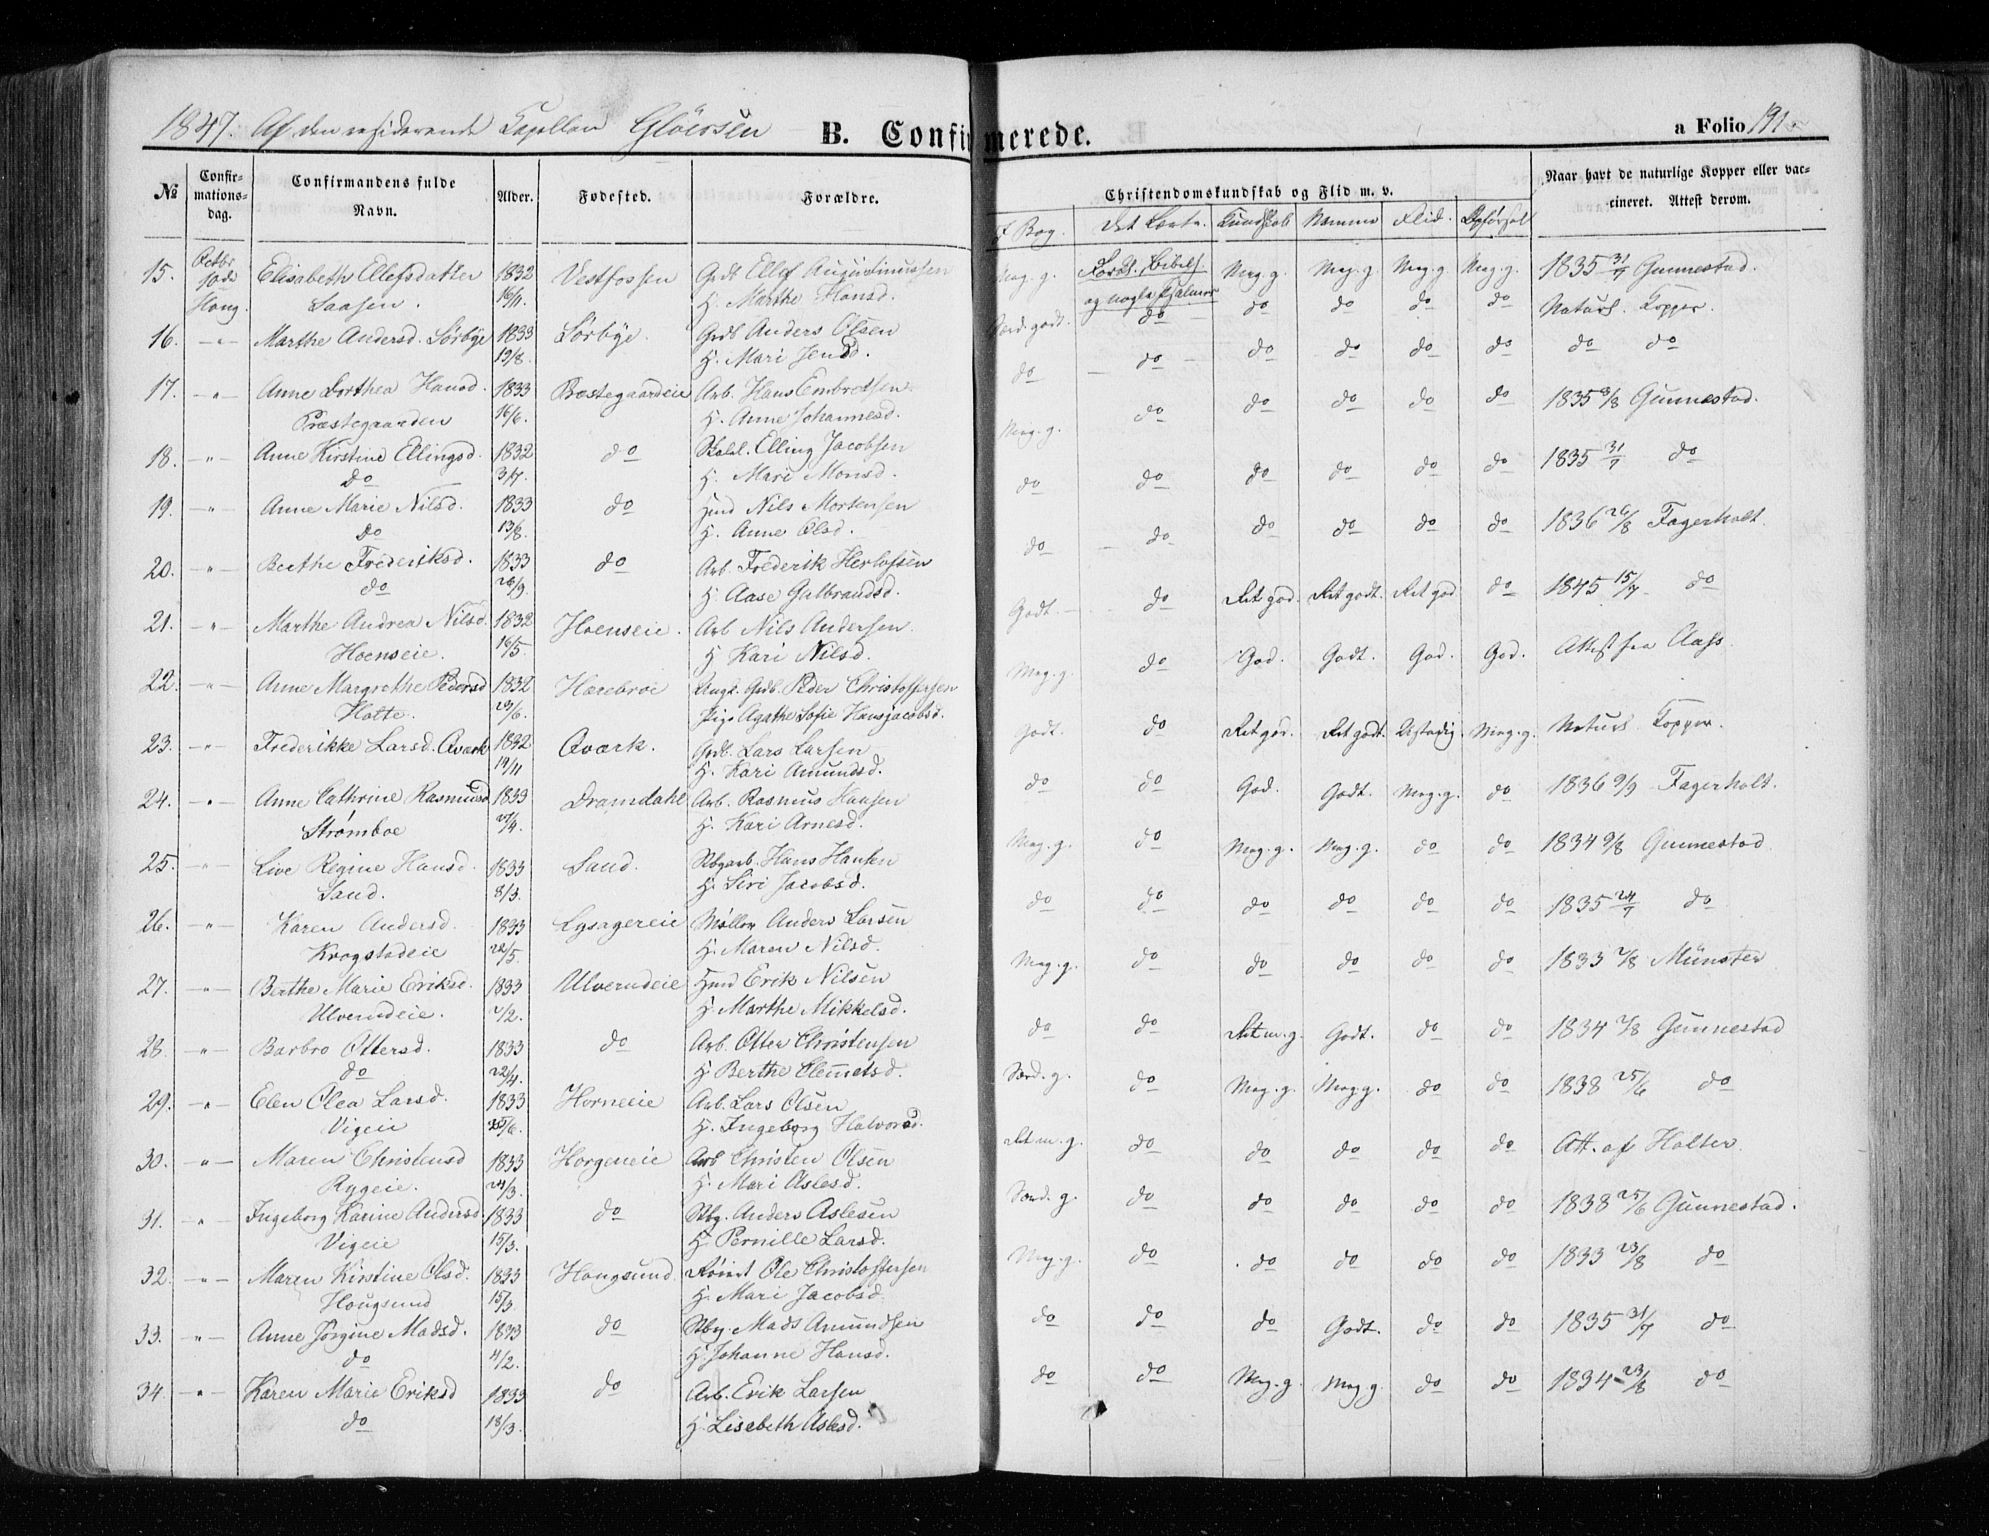 1847. Af den residerende Capellan Glöersen B. Confirmerede. a Folio 191.
№ Confirmations-dag. Confirmandens fulde Navn. Alder. Fødested. Forældre. Christendomskundskab og Flid m. v. Naar havt de naturlige Kopper eller vaccineret. Attest derom.
I Bog. Det Lærte. Kundskab Nemme Flid. Opførsel
15. Octbr 10de Elisabeth Ellefsdatter 1832 Vestfossen Grdb Ellef Augustinussen Meg. g. Forst. Bibelh. Meg. g. Meg. g Meg. g Meg. g. 1835 31/7 Gunnestad.
Houg. Saasen. 16/11. H. Marthe Hansd. og nogle Psalmer
16. -"- Marthe Andersd. Sörbye 1833 Sörbye. Grdb Anders Olsen Særd. godt. do do do do do Naturl. Kopper.
19/8. H. Mari Jensd.
17. -"- Anne Dorthea Hansd. 1833 Præstegaardeie Arb. Hans Embretsen do do do do do do do do
Præstegaarden 16/6. H. Anne Johannesd.
18. -"- Anne Kirstine Ellingsd. 1832 do Skolel. Elling Jacobsen Meg. g. do do do do do 1835 8/8 Gunnestad.
do 3/7. H. Mari Monsd.
19. -"- Anne Marie Nilsd. 1833 do Hmd Nils Mortensen do do do do do do 1835 31/7 do
do 13/8. H. Anne Olsd.
20. -"- Berthe Frederiksd. 1833 do Arb. Frederik Herlofsen do do do do do do 1836 26/8 Fagerholt.
do 26/9. H. Aase Gulbrandsd.
21. -"- Marthe Andrea Nilsd. 1832 Hoenseie. Arb Nils Andersen Godt. do Ret god. Ret godt. Ret god do 1845 15/7 do
Hoenseie. 16/5. H Kari Nilsd.
22. -"- Anne Margrethe Pedersd 1832 Hærebroe Ungk. Grdb. Peder Christoffersen Meg. g. do God. Godt. God. God. Attest fra Aass
Holte. 29/6. Pige Agathe Sofie Hansjacobsd.
23. -"- Frederikke Larsd. Qværk 1832 Qværk. Grdb. Lars Larsen Godt. do Ret god. Ret godt. Ustadig Meg. g. Naturl. Kopper.
19/11 H. Kari Amundsd.
24. -"- Anne Cathrine Rasmusd 1833 Dramdahl Arb. Rasmus Hansen do do God. Godt. Meg. g. do 1836 9/9 Fagerholt.
Strømboe 27/4. H. Kari Arnesd.
25. -"- Live Regine Hansd. 1833 Sand. Rbgarb. Hans Hansen Meg. g. do Meg. g. Meg. g. do do 1834 9/8 Gunnestad
Sand. 8/3. H. Siri Jacobsd.
26. -"- Karen Andersd. 1833 Lysagereie Møller Anders Larsen do do do do do do 1835 24/7 do
Krogstadeie 22/5. H. Maren Nilsd.
27. -"- Berthe Marie Eriksd. 1833 Ulverudeie Hmd Erik Nilsen Meg. g. do do do do do 1833 7/8 Münster
Ulverudeie. 2/2. H. Marthe Mikkelsd.
28. -"- Barbro Ottersd. 1833 do Arb. Otter Christensen do do Ret m. g. Godt. do do 1834 7/8 Gunnestad
do 22/4. H. Berthe Clemetsd.
29. -"- Elen Olea Larsd. 1833 Horneeie Arb. Lars Olsen Særd. g. do Meg. g. Meg g. do do 1838 25/6 do
Vigeie 25/6. H. Ingeborg Halvorsd.
30. -"- Maren Christensd 1833 Horgeneie Arb Christen Olsen Ret m. g. do do do do do Att. af Holter.
Rygeie. 24/3. H. Mari Aslesd.
31. -"- Ingeborg Karine Andersd. 1833 do Rbg. Anders Aslesen Særd. g. do do do do do 1838 25/6 Gunnestad.
Vigeie 15/3. H. Pernille Larsd.
32. -"- Maren Kirstine Olsd. 1833 Hougsund Ole Christoffersen Meg. g. do do do do do 1833 23/8 do
Hougsund 15/3. H. Mari Jacobsd.
33. -"- Anne Jørgine Madsd. 1833 do Rbg. Mads Amundsen do do do Godt. do do 1835 31/7 do
do 4/2. H. Johanne Hansd.
34. -"- Karen Marie Eriksd 1833 do Arb. Erik Larsen do do Meg. g. Meg g. do do 1834 23/8 do
do 18/3. H. Lisebeth Aslesd.